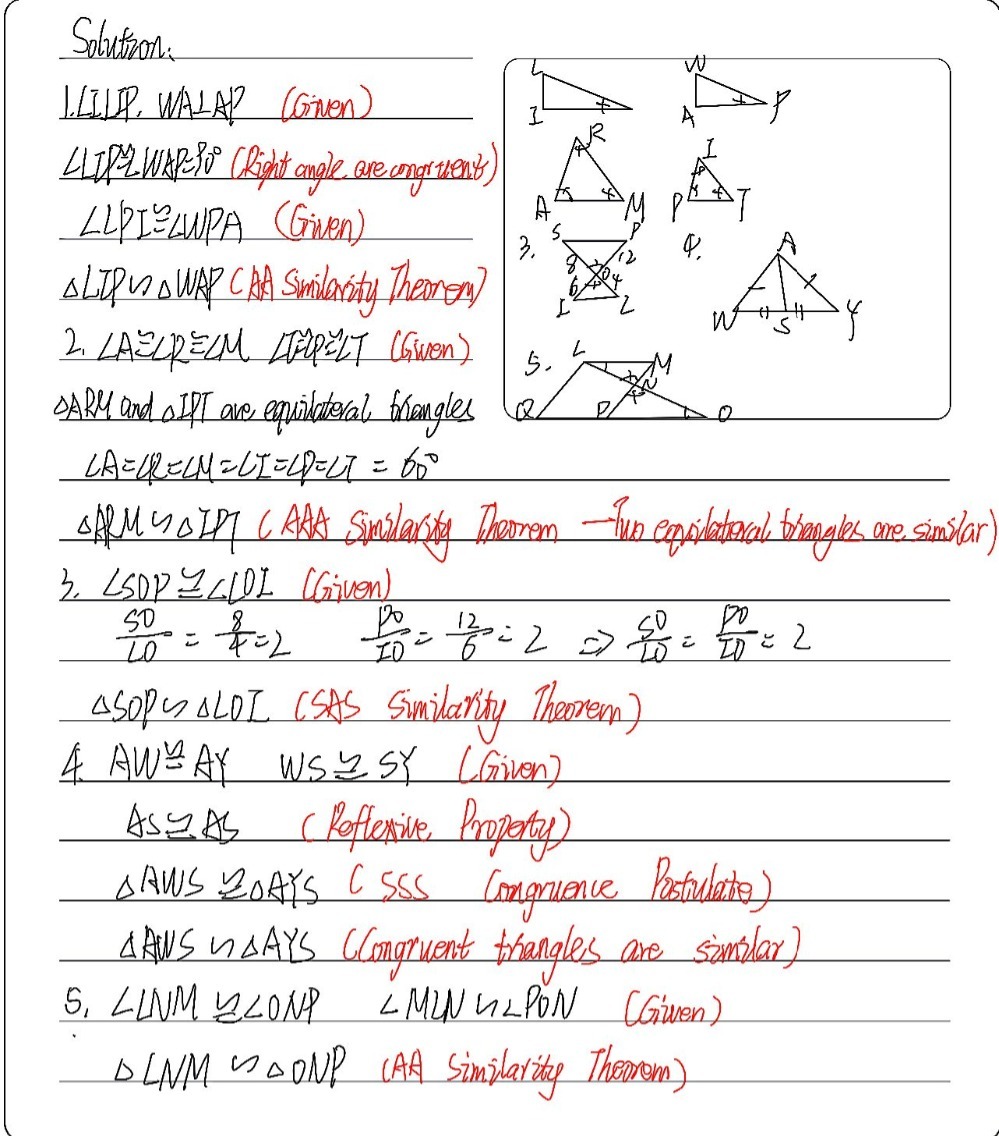 Solution:
1. LI⊥IP. WA⊥AP (Given)
∠LIP≅∠WAP=90° (Right angle are congruent)
∠LPI≅∠WPA (Given)
△LIP∽△WAP (AA Similarity Theorem)
2. ∠A≅∠R≅∠M ∠I≅∠P≅∠T (Given)
△ARM and △IPT are equilateral triangles
∠A=∠R=∠M=∠I=∠P=∠T = 60°
△ARM∽△IPT (AAA Similarity Theorem - Two equilateral triangles are similar)
3. ∠SOP≅∠LOI (Given)
SO/LO = 8/4 = 2 PO/IO = 12/6 = 2 ⇒ SO/LO = PO/IO = 2
△SOP∽△LOI (SAS Similarity Theorem)
4. AW≅AY WS≅SY (Given)
AS≅AS (Reflexive Property)
△AWS≅△AYS (SSS Congruence Postulate)
△AWS∽△AYS (Congruent triangles are similar)
5. ∠LNM≅∠ONP ∠MLN∽∠PON (Given)
△LNM∽△ONP (AA Similarity Theorem)
L
I
W
A
P
R
A
M
I
P
T
3.
S
P
8
12
O
6
4
I
L
4.
A
W
S
Y
5.
L
M
N
Q
P
O